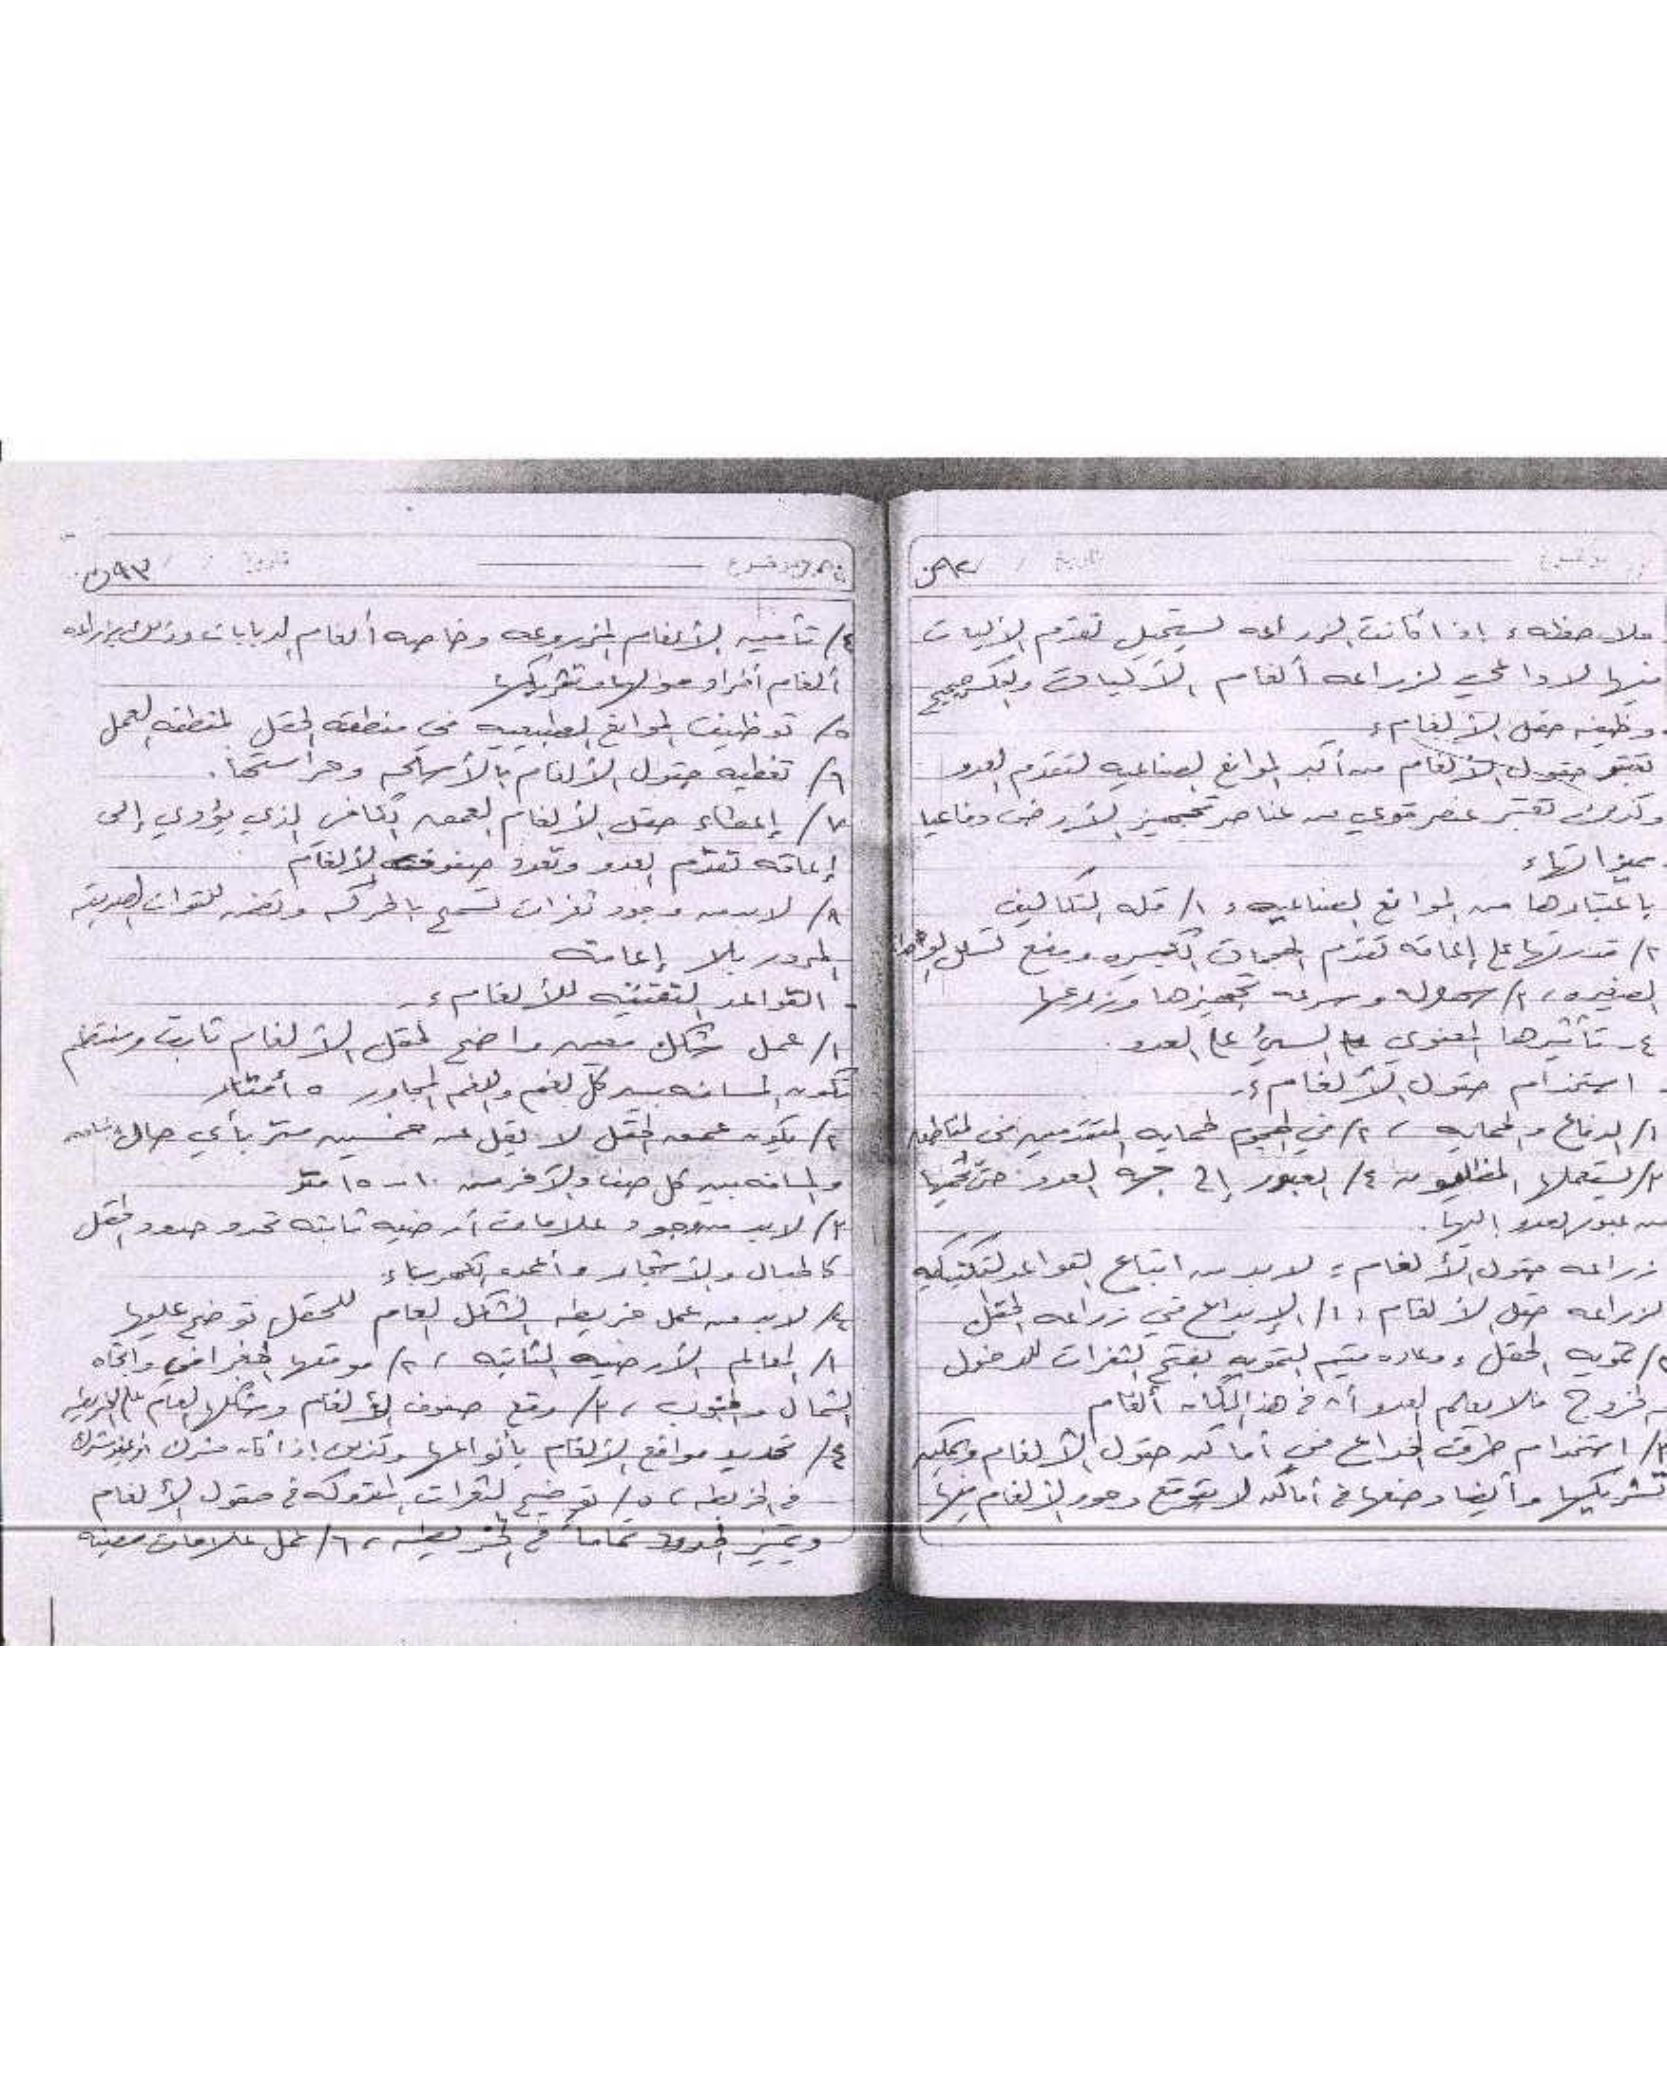 ص٩٢
ملاحظة، إذا كانت الزراعه يستحيل تقدم الآليات
منها لا داعي لزراعه ألغام الآليات والعكس صحيح
وظيفه حقل الألغام:
تعتبر حقول الألغام من أكبر الموانع الصناعيه لتقدم العدو
وكذلك تعتبر عنصر قوي من عناصر تجهيز الأرض دفاعيا
ميزاتها:
باعتبارها من الموانع الصناعيه: ١/ قله التكاليف
٢/ قدرتها على إعاقه تقدم الكبيره ومنع تسلل
الصغيره، ٣/ سهوله وسرعه تجهيزها وزرعها
٤- تأثيرها المعنوي السيئ على العدو.
استخدام حقول الألغام:-
١/ الدفاع والحمايه، ٢/ في الهجوم لحمايه المتقدمين في
٣/ يستعملها المظليون ٤/ العبور إلى جهه العدو حتى تحميها
من عبور العدو إليها.
زراعه حقول الألغام: لابد من اتباع القواعد التكتيكيه
لزراعه حقل الألغام: ١/ الإبداع في زراعه الحقل
٢/ تمويه الحقل، وعاده يتم التمويه بفتح الثغرات للدخول
والخروج فلا يعلم العدو أن في هذا المكان ألغام
٣/ استخدام طرق الخداع في أماكن حقول الألغام ويمكن
تشريكها وأيضا وضعها في أماكن لا يتوقع وجود الألغام فيها
ص٩٣
٤/ تأمين الألغام المزروعه وخاصه ألغام الدبابات وذلك بزراعه
ألغام أفراد حولها وتشريكها
٥/ توظيف الموانع الطبيعيه في منطقه الحقل لمنطقه العمل
٦/ تغطيه حقول الألغام بالأسلحه وحراستها.
٧/ إعطاء حقل الألغام العمق الكافي الذي يؤدي إلى
إعاقه تقدم العدو وتعدد صفوف الألغام
٨/ لابد من وجود ثغرات تسمح بالحركه للقوات الصديقه
المرور بلا إعاقة
- القواعد التقنيه للألغام:-
١/ عمل شكل معين واضح لحقل الألغام ثابت ومنتظم
تكون المسافه بين كل لغم واللغم المجاور ٥ أمتار
٢/ يكون عمق الحقل لا يقل عن خمسين متر بأي حال
والمسافه بين كل صف والآخر من ١٠ - ١٥ متر
٣/ لابد من وجود علامات أرضيه ثابته تحدد حدود الحقل
كالجبال والأشجار وأعمده الكهرباء:
٤/ لابد من عمل خريطه الشكل العام للحقل توضح عليها
١/ المعالم الأرضيه الثابته، ٢/ موقعها الجغرافي واتجاه
الشمال والجنوب، ٣/ وقع صفوف الألغام وشكلها العام على الخريطه
٤/ تحديد مواقع الألغام بأنواعها وكذلك إذا كان مشرك
في الخريطه، ٥/ توضيح الثغرات المتروكه في حقول الألغام
وتميز الحدود تماماً في الخريطه، ٦/ عمل علامات معينه